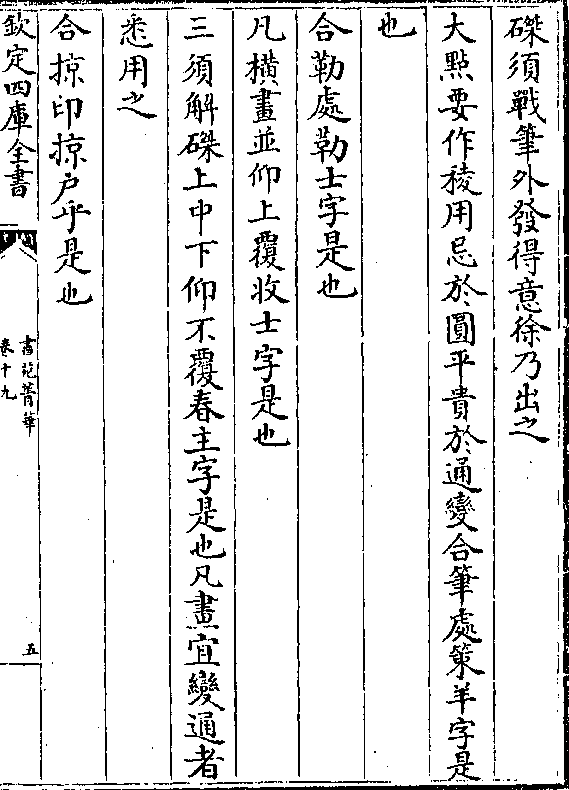 磔須戰筆外發得意徐乃出之
大㸃要作稜用忌於圓平貴於通變合筆處策羊字是
也
合勒處勒士字是也
凡横畫並仰上覆收士字是也
三須解磔上中下仰不覆春主字是也凡畫宜變通者
悉用之
合掠印掠户乎是也
欽定四庫全書
書苑菁華
卷十九
五